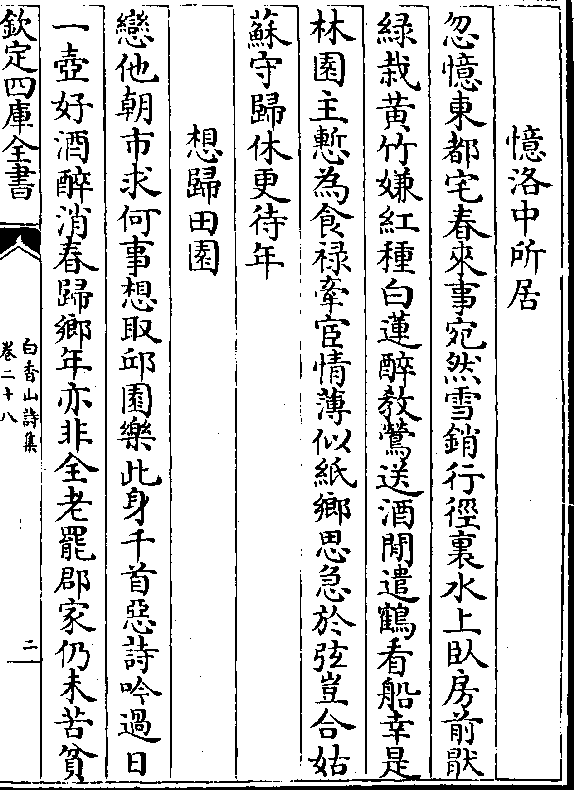 憶洛中所居
忽憶東都宅春來事宛然雪銷行徑裏水上臥房前猒
綠栽黃竹嫌紅種白蓮醉教鶯送酒閒遣鶴看船幸是
林園主慙為食祿牽宦情薄似紙鄉思急於弦豈合姑
蘇守歸休更待年
想歸田園
戀他朝市求何事想取邱園樂此身千首惡詩吟過日
一壺好酒醉消春歸鄉年亦非全老罷郡家仍未苦貧
欽定四庫全書
白香山詩集
卷二十八
二